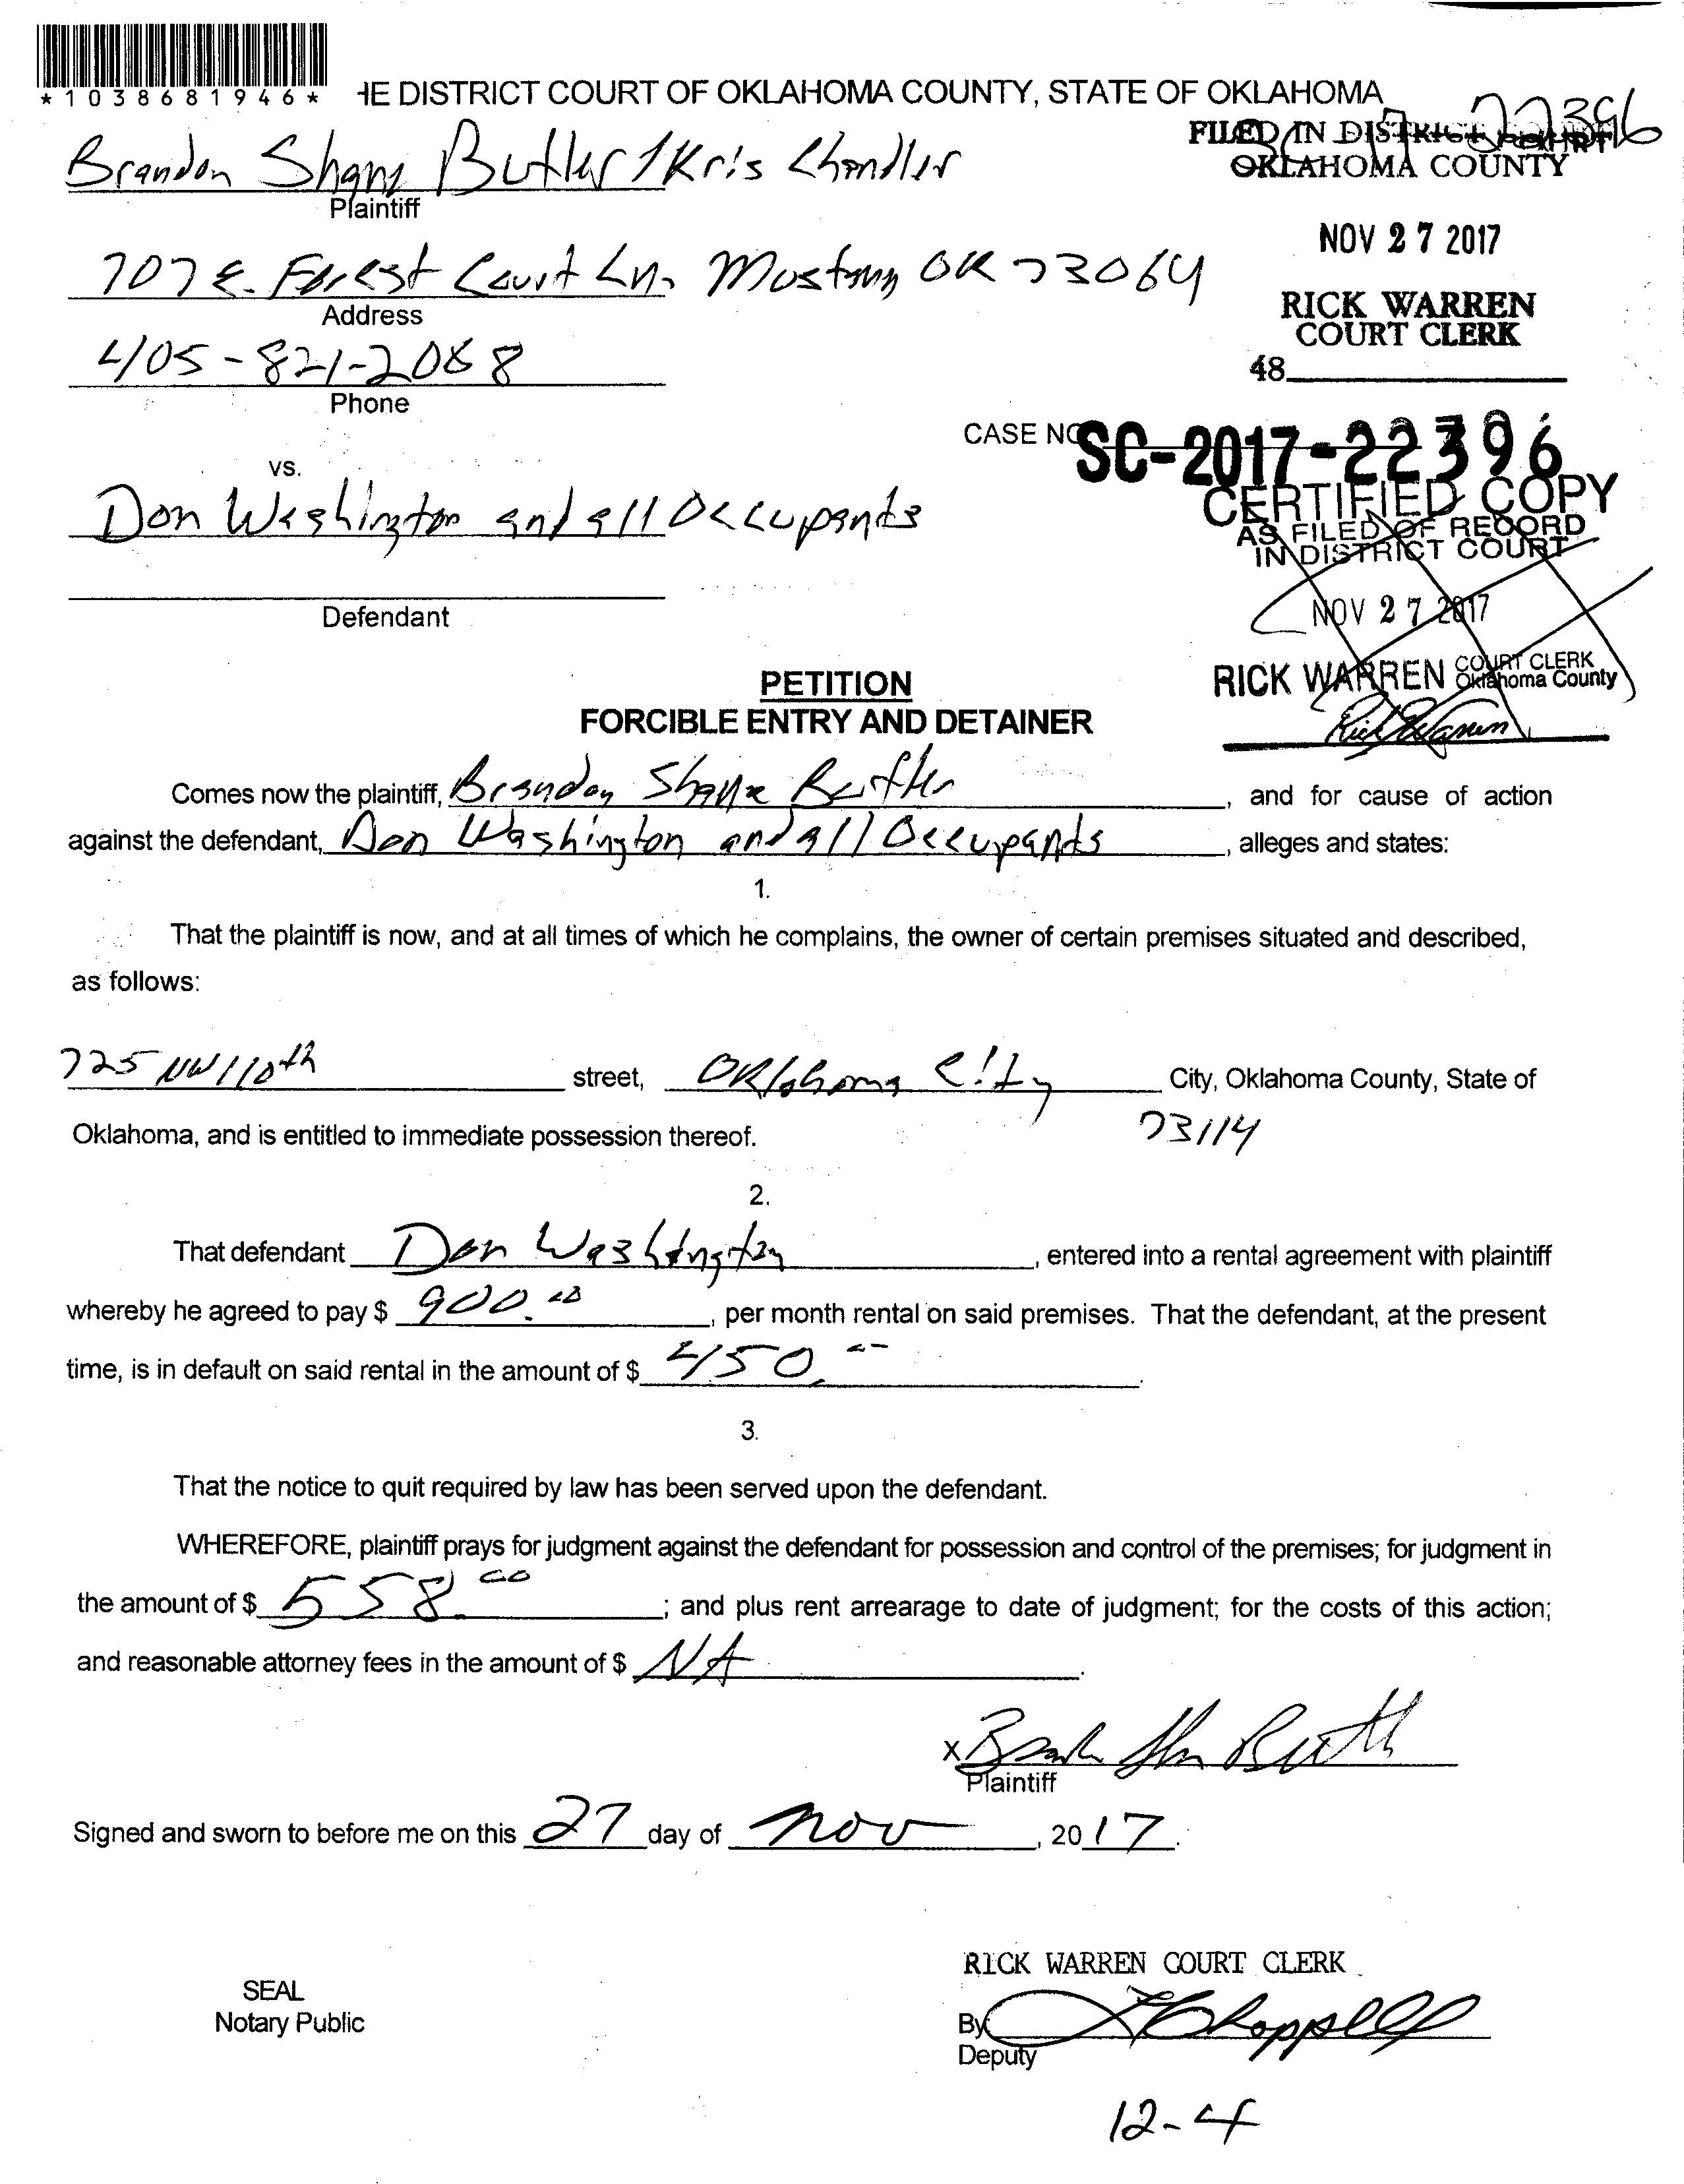 *1038681946*
HE DISTRICT COURT OF OKLAHOMA COUNTY, STATE OF OKLAHOMA
22396
FILED IN DISTRICT COURT
OKLAHOMA COUNTY
Brandon Shane Butler / Kris Chandler
Plaintiff
NOV 27 2017
707 E. Forest Court Ln. Mustang OK 73064
Address
RICK WARREN
COURT CLERK
405-821-2068
48
Phone
CASE NO SC-2017-22396
vs.
CERTIFIED COPY
AS FILED OF RECORD
IN DISTRICT COURT
Don Washington and all Occupants
NOV 27 2017
Defendant
RICK WARREN COURT CLERK
Oklahoma County
Rick Warren
PETITION
FORCIBLE ENTRY AND DETAINER
Comes now the plaintiff, Brandon Shane Butler, and for cause of action
against the defendant, Don Washington and all Occupants, alleges and states:
1.
That the plaintiff is now, and at all times of which he complains, the owner of certain premises situated and described,
as follows:
725 NW 110th street, Oklahoma City City, Oklahoma County, State of
73114
Oklahoma, and is entitled to immediate possession thereof.
2.
That defendant Don Washington, entered into a rental agreement with plaintiff
whereby he agreed to pay $ 900.00, per month rental on said premises. That the defendant, at the present
time, is in default on said rental in the amount of $ 450.00.
3.
That the notice to quit required by law has been served upon the defendant.
WHEREFORE, plaintiff prays for judgment against the defendant for possession and control of the premises; for judgment in
the amount of $ 558.00; and plus rent arrearage to date of judgment; for the costs of this action;
and reasonable attorney fees in the amount of $ NA.
X
Plaintiff
Signed and sworn to before me on this 27 day of Nov, 2017.
RICK WARREN COURT CLERK
SEAL
Notary Public
By Chappell
Deputy
12-4